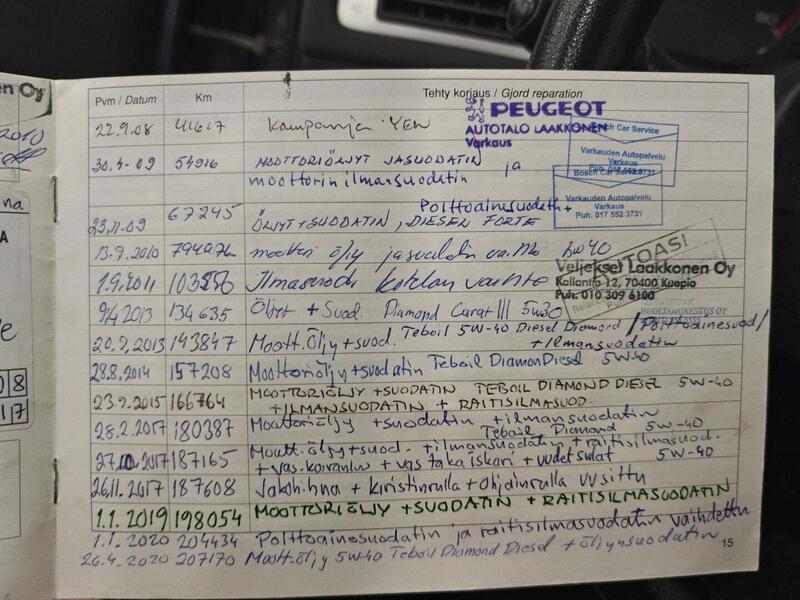 en Oy
2010
na
A
e
0 8
1 7
Pvm / Datum Km Tehty korjaus / Gjord reparation
PEUGEOT
AUTOTALO LAAKKONEN
Varkaus
22.9.08 41617 Kampanja YEW
Bosch Car Service
Varkauden Autopalvelu
Varkaus
Puh. 017 552 3731
30.4-09 54916 MOOTTORIÖLJYT JA SUODATIN ja
moottorin ilmansuodatin
Bosch Car Service
Varkauden Autopalvelu
Varkaus
Puh. 017 552 3731
Polttoainesuodatin +
23.11-09 67245 ÖLJYT+SUODATIN, DIESEL FORTE
13.9.2010 moottori öljy ja suodatin 5w40
AUTOASI
Veljekset Laakkonen Oy
Kallantie 12, 70400 Kuopio
Puh. 010 309 6100
1.9.2011 Ilmasuoda kotelon vaihto
HUOLTAMOKESKUS OY
2013 134635 Öljyt + Suod. Diamond Carat III 5w30
20.9.2013 143847 Moott.öljy+suod. Teboil 5W-40 Diesel Diamond /Polttoainesuod/
+ilmansuodatin
28.8.2014 157208 Moottoriöljy+suodatin Teboil Diamon Diesel 5W-40
23.9.2015 166764 MOOTTORIÖLJY +SUODATIN TEBOIL DIAMOND DIESEL 5W-40
+ILMANSUODATIN + RAITISILMASUOD.
28.2.2017 180387 Moottoriöljy +suodatin +ilmansuodatin
Teboil Diamond 5W-40
27.10.2017 187165 Moott.öljy+suod. +ilmansuodatin+raitisilmasuod.
+vas.koiranluu + vas taka iskari + uudet sulat 5W-40
26.11.2017 187608 Jakohihna + kiristinrulla + ohjainrulla uusittu
1.1.2019 198054 MOOTTORIÖLJY +SUODATIN + RAITISILMASUODATIN
1.1.2020 204434 Polttoainesuodatin ja raitisilmasuodatin vaihdettu
26.4.2020 207170 Moott.öljy 5W-40 Teboil Diamond Diesel + öljynsuodatin
15